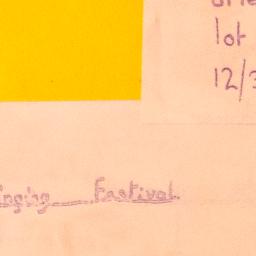 lot
12/3
inging Festival